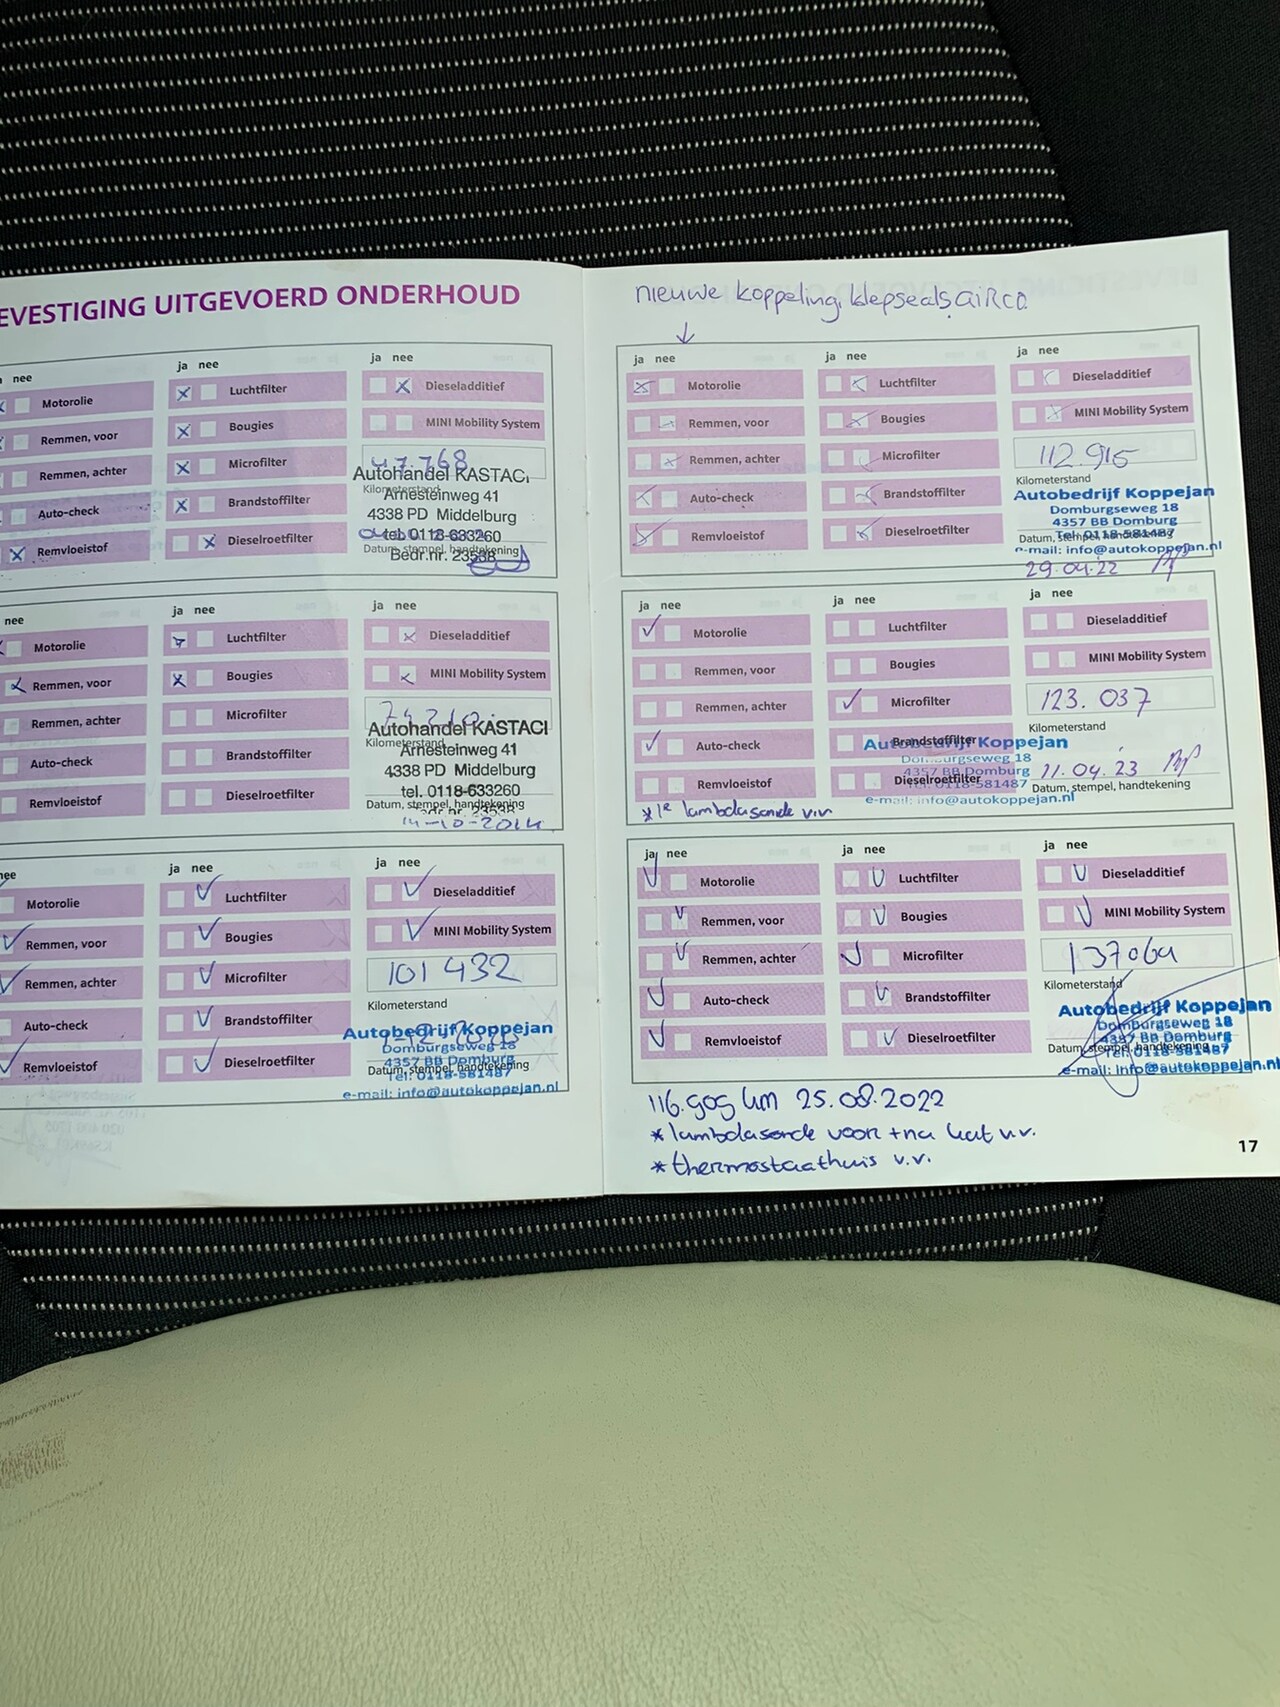 EVESTIGING UITGEVOERD ONDERHOUD
nee
ja nee
ja nee
Motorolie
Luchtfilter
Dieseladditief
Remmen, voor
Bougies
MINI Mobility System
Remmen, achter
Microfilter
47.768
Auto-check
Brandstoffilter
Kilometerstand
Remvloeistof
Dieselroetfilter
Autohandel KASTACI
Arnesteinweg 41
4338 PD Middelburg
tel. 0118-633260
Bedr.nr. 23538
Datum, stempel, handtekening
nee
ja nee
ja nee
Motorolie
Luchtfilter
Dieseladditief
Remmen, voor
Bougies
MINI Mobility System
Remmen, achter
Microfilter
Auto-check
Brandstoffilter
Kilometerstand
Remvloeistof
Dieselroetfilter
Autohandel KASTACI
Arnesteinweg 41
4338 PD Middelburg
tel. 0118-633260
Datum, stempel, handtekening
14-10-2014
nee
ja nee
ja nee
Motorolie
Luchtfilter
Dieseladditief
Remmen, voor
Bougies
MINI Mobility System
Remmen, achter
Microfilter
101 432
Auto-check
Brandstoffilter
Kilometerstand
Remvloeistof
Dieselroetfilter
Autobedrijf Koppejan
Domburgseweg 18
4357 BB Domburg
Tel. 0118-581487
Datum, stempel, handtekening
e-mail: info@autokoppejan.nl
nieuwe koppeling, klepseals, airco
ja nee
ja nee
ja nee
Motorolie
Luchtfilter
Dieseladditief
Remmen, voor
Bougies
MINI Mobility System
Remmen, achter
Microfilter
112.915
Auto-check
Brandstoffilter
Kilometerstand
Remvloeistof
Dieselroetfilter
Autobedrijf Koppejan
Domburgseweg 18
4357 BB Domburg
Tel. 0118-581487
Datum, stempel, handtekening
e-mail: info@autokoppejan.nl
29.04.22
ja nee
ja nee
ja nee
Motorolie
Luchtfilter
Dieseladditief
Remmen, voor
Bougies
MINI Mobility System
Remmen, achter
Microfilter
123.037
Auto-check
Brandstoffilter
Kilometerstand
Remvloeistof
Dieselroetfilter
Autobedrijf Koppejan
Domburgseweg 18
4357 BB Domburg
Tel. 0118-581487
e-mail: info@autokoppejan.nl
11.04.23
Datum, stempel, handtekening
*1e lambdasonde v.v.
ja nee
ja nee
ja nee
Motorolie
Luchtfilter
Dieseladditief
Remmen, voor
Bougies
MINI Mobility System
Remmen, achter
Microfilter
Auto-check
Brandstoffilter
Kilometerstand
Remvloeistof
Dieselroetfilter
Autobedrijf Koppejan
Domburgseweg 18
4357 BB Domburg
Tel. 0118-581487
Datum, stempel, handtekening
e-mail: info@autokoppejan.nl
116.909 km 25.08.2022
* lambdasonde voor + na kat v.v.
* thermostaathuis v.v.
17